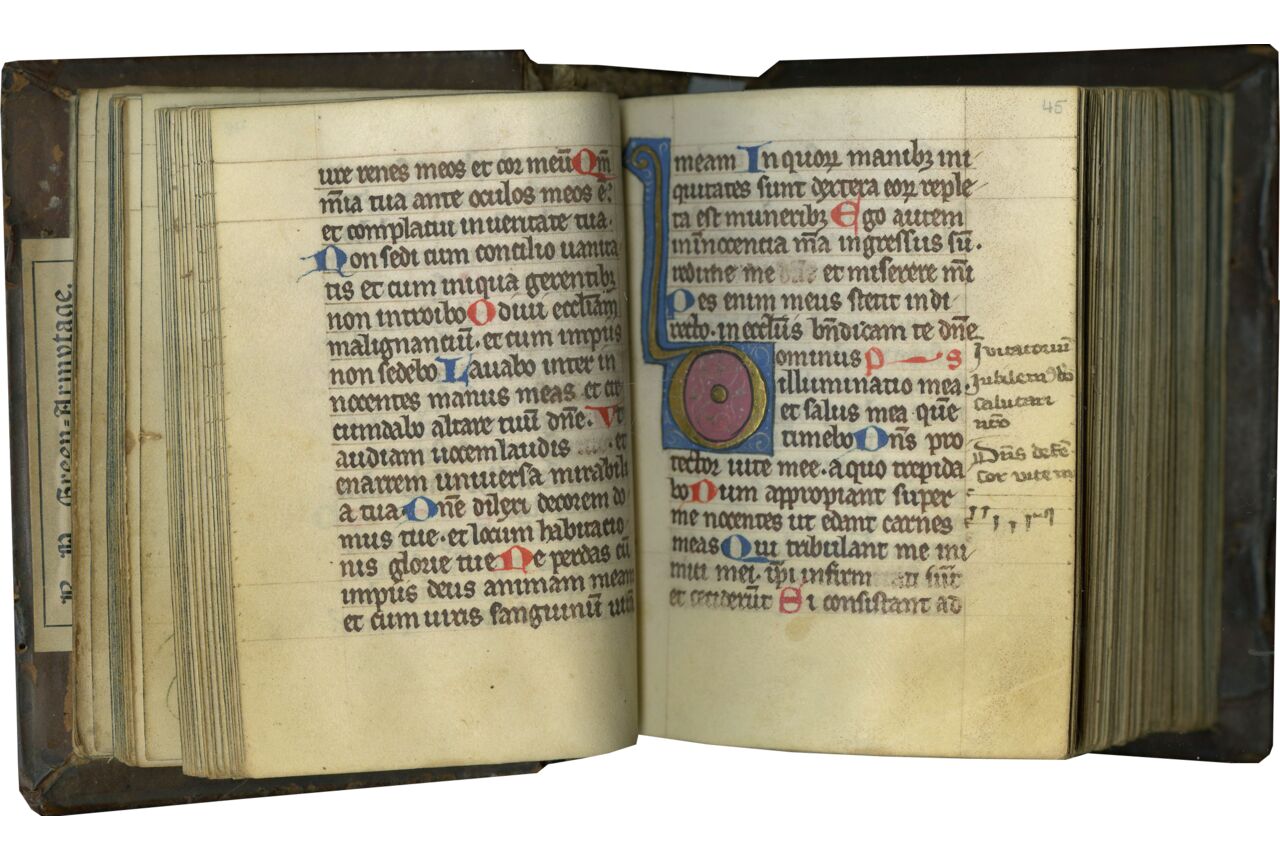 ure renes meos et cor meū Qm̄
m̄ia tua ante oculos meos ē:
et complacui in ueritate tua.
Non sedi cum concilio uanita
tis et cum iniqua gerentibꝫ
non introibo Odiui eccliam̄
malignanciū. et cum impiis
non sedebo Lauabo inter in
nocentes manus meas et cir
cumdabo altare tuū dn̄e. Vt
audiam uocem laudis et
enarrem uniuersa mirabili
a tua Dn̄e dilexi decorem do
mus tue. et locum habitacio
nis glorie tue Ne perdas cū
impiis deus animam meam
et cum uiris sanguinū uitā
45
meam In quoꝝ manibꝫ ini
quitates sunt dextera eoꝝ reple
ta est muneribꝫ Ego autem
in innocentia m̄a ingressus sū.
redime me et miserere mī
Pes enim meus stetit in di
recto. in eccl̄iis bn̄dicam te dn̄e
Dominus p s
illuminatio mea.
et salus mea quē
timebo Dn̄s pro
tector uite mee. a quo trepida
bo Dum appropiant super
me nocentes ut edant carnes
meas Qui tribulant me ini
mici mei. ip̄i infirm ati sūt
et ceciderūt Si consistant ad
Inuitatoriū
Jubilem do
salutari
nr̄o
Dn̄s defē
sor uite m
R. R. Green-Armytage.